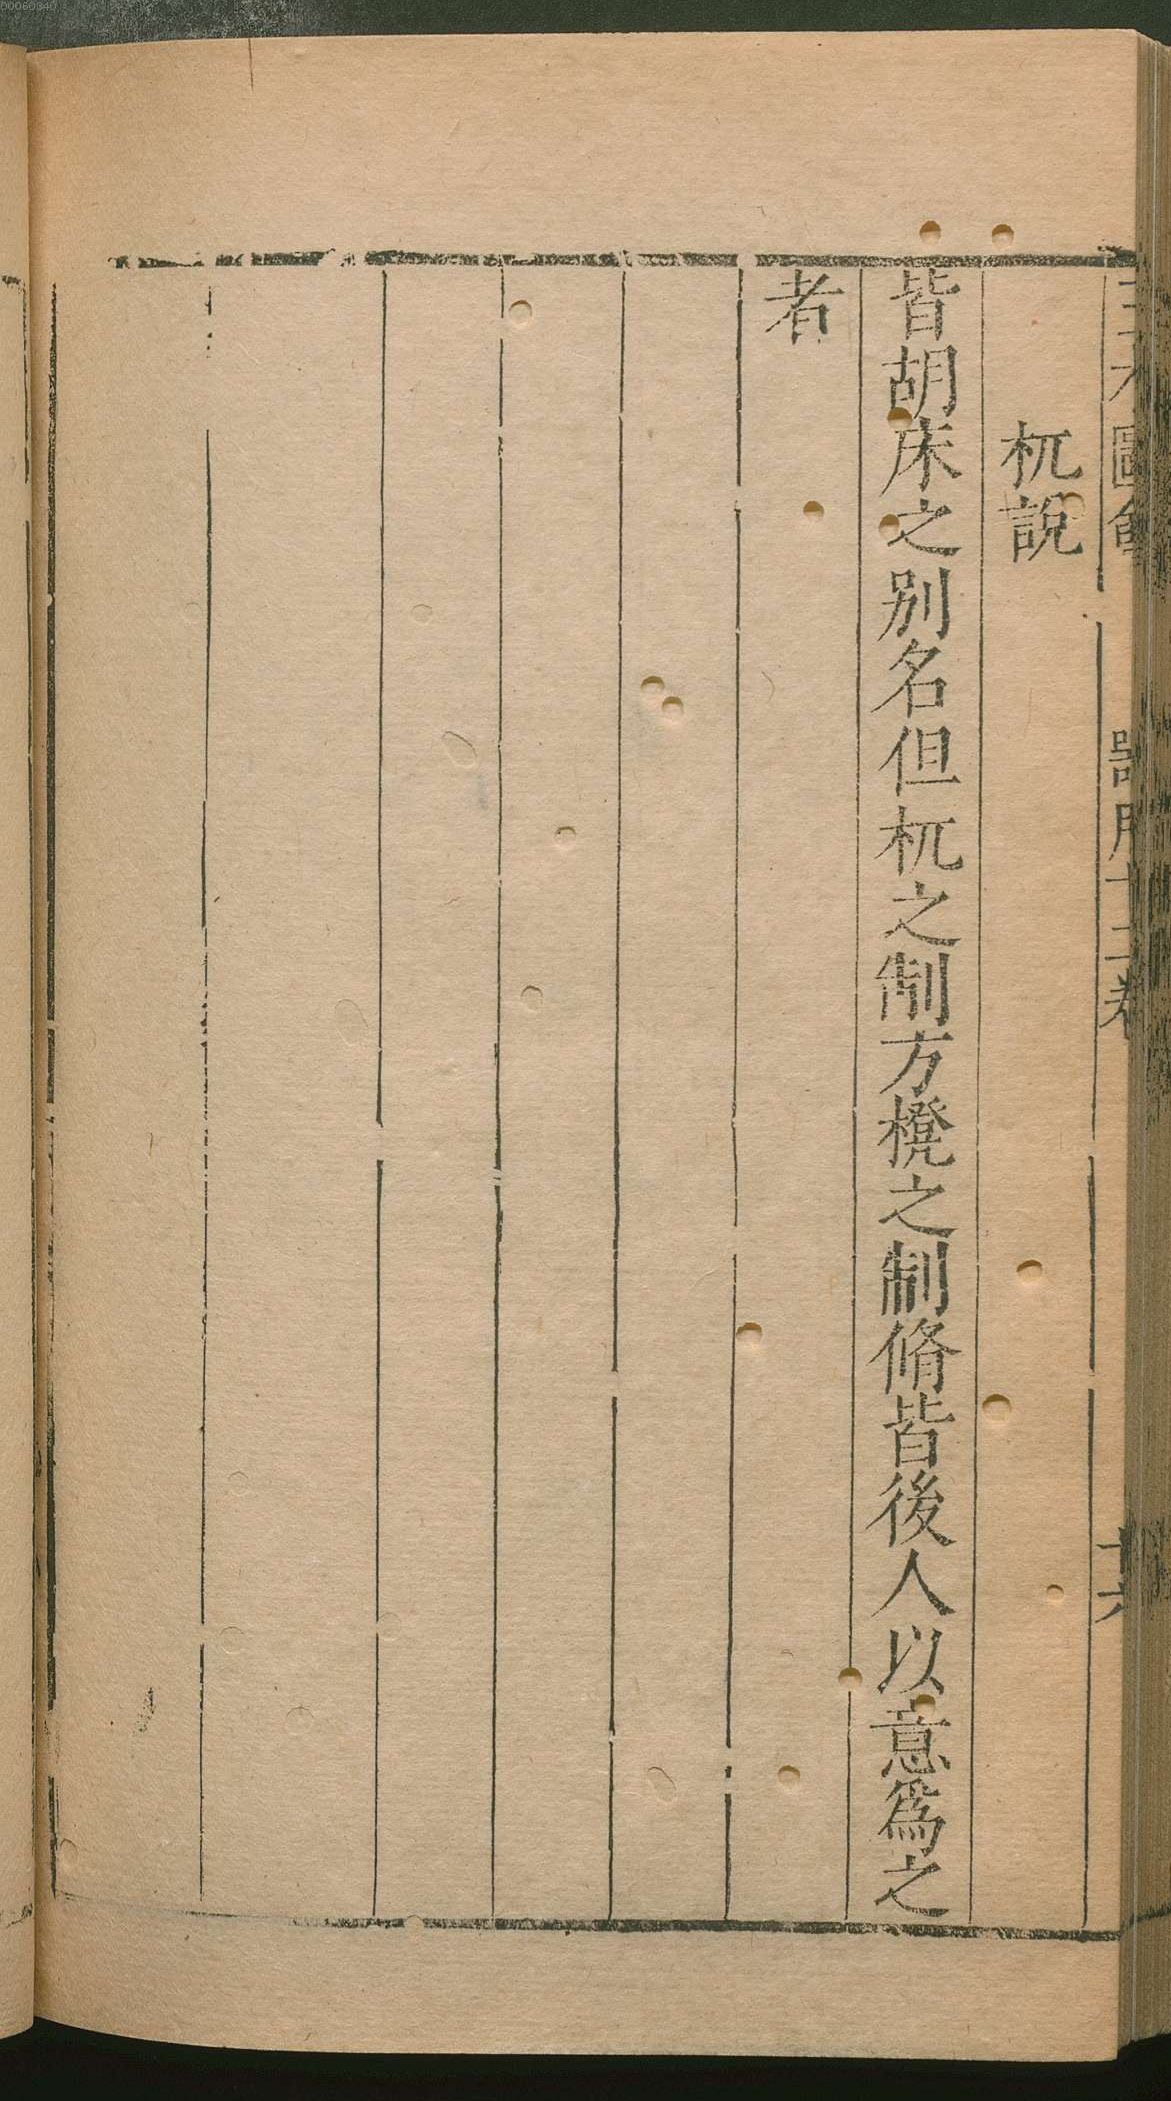 三才圖會 器用十二卷 十六
杌說
皆胡床之别名但杌之制方櫈之制脩皆後人以意爲之
者
00060340